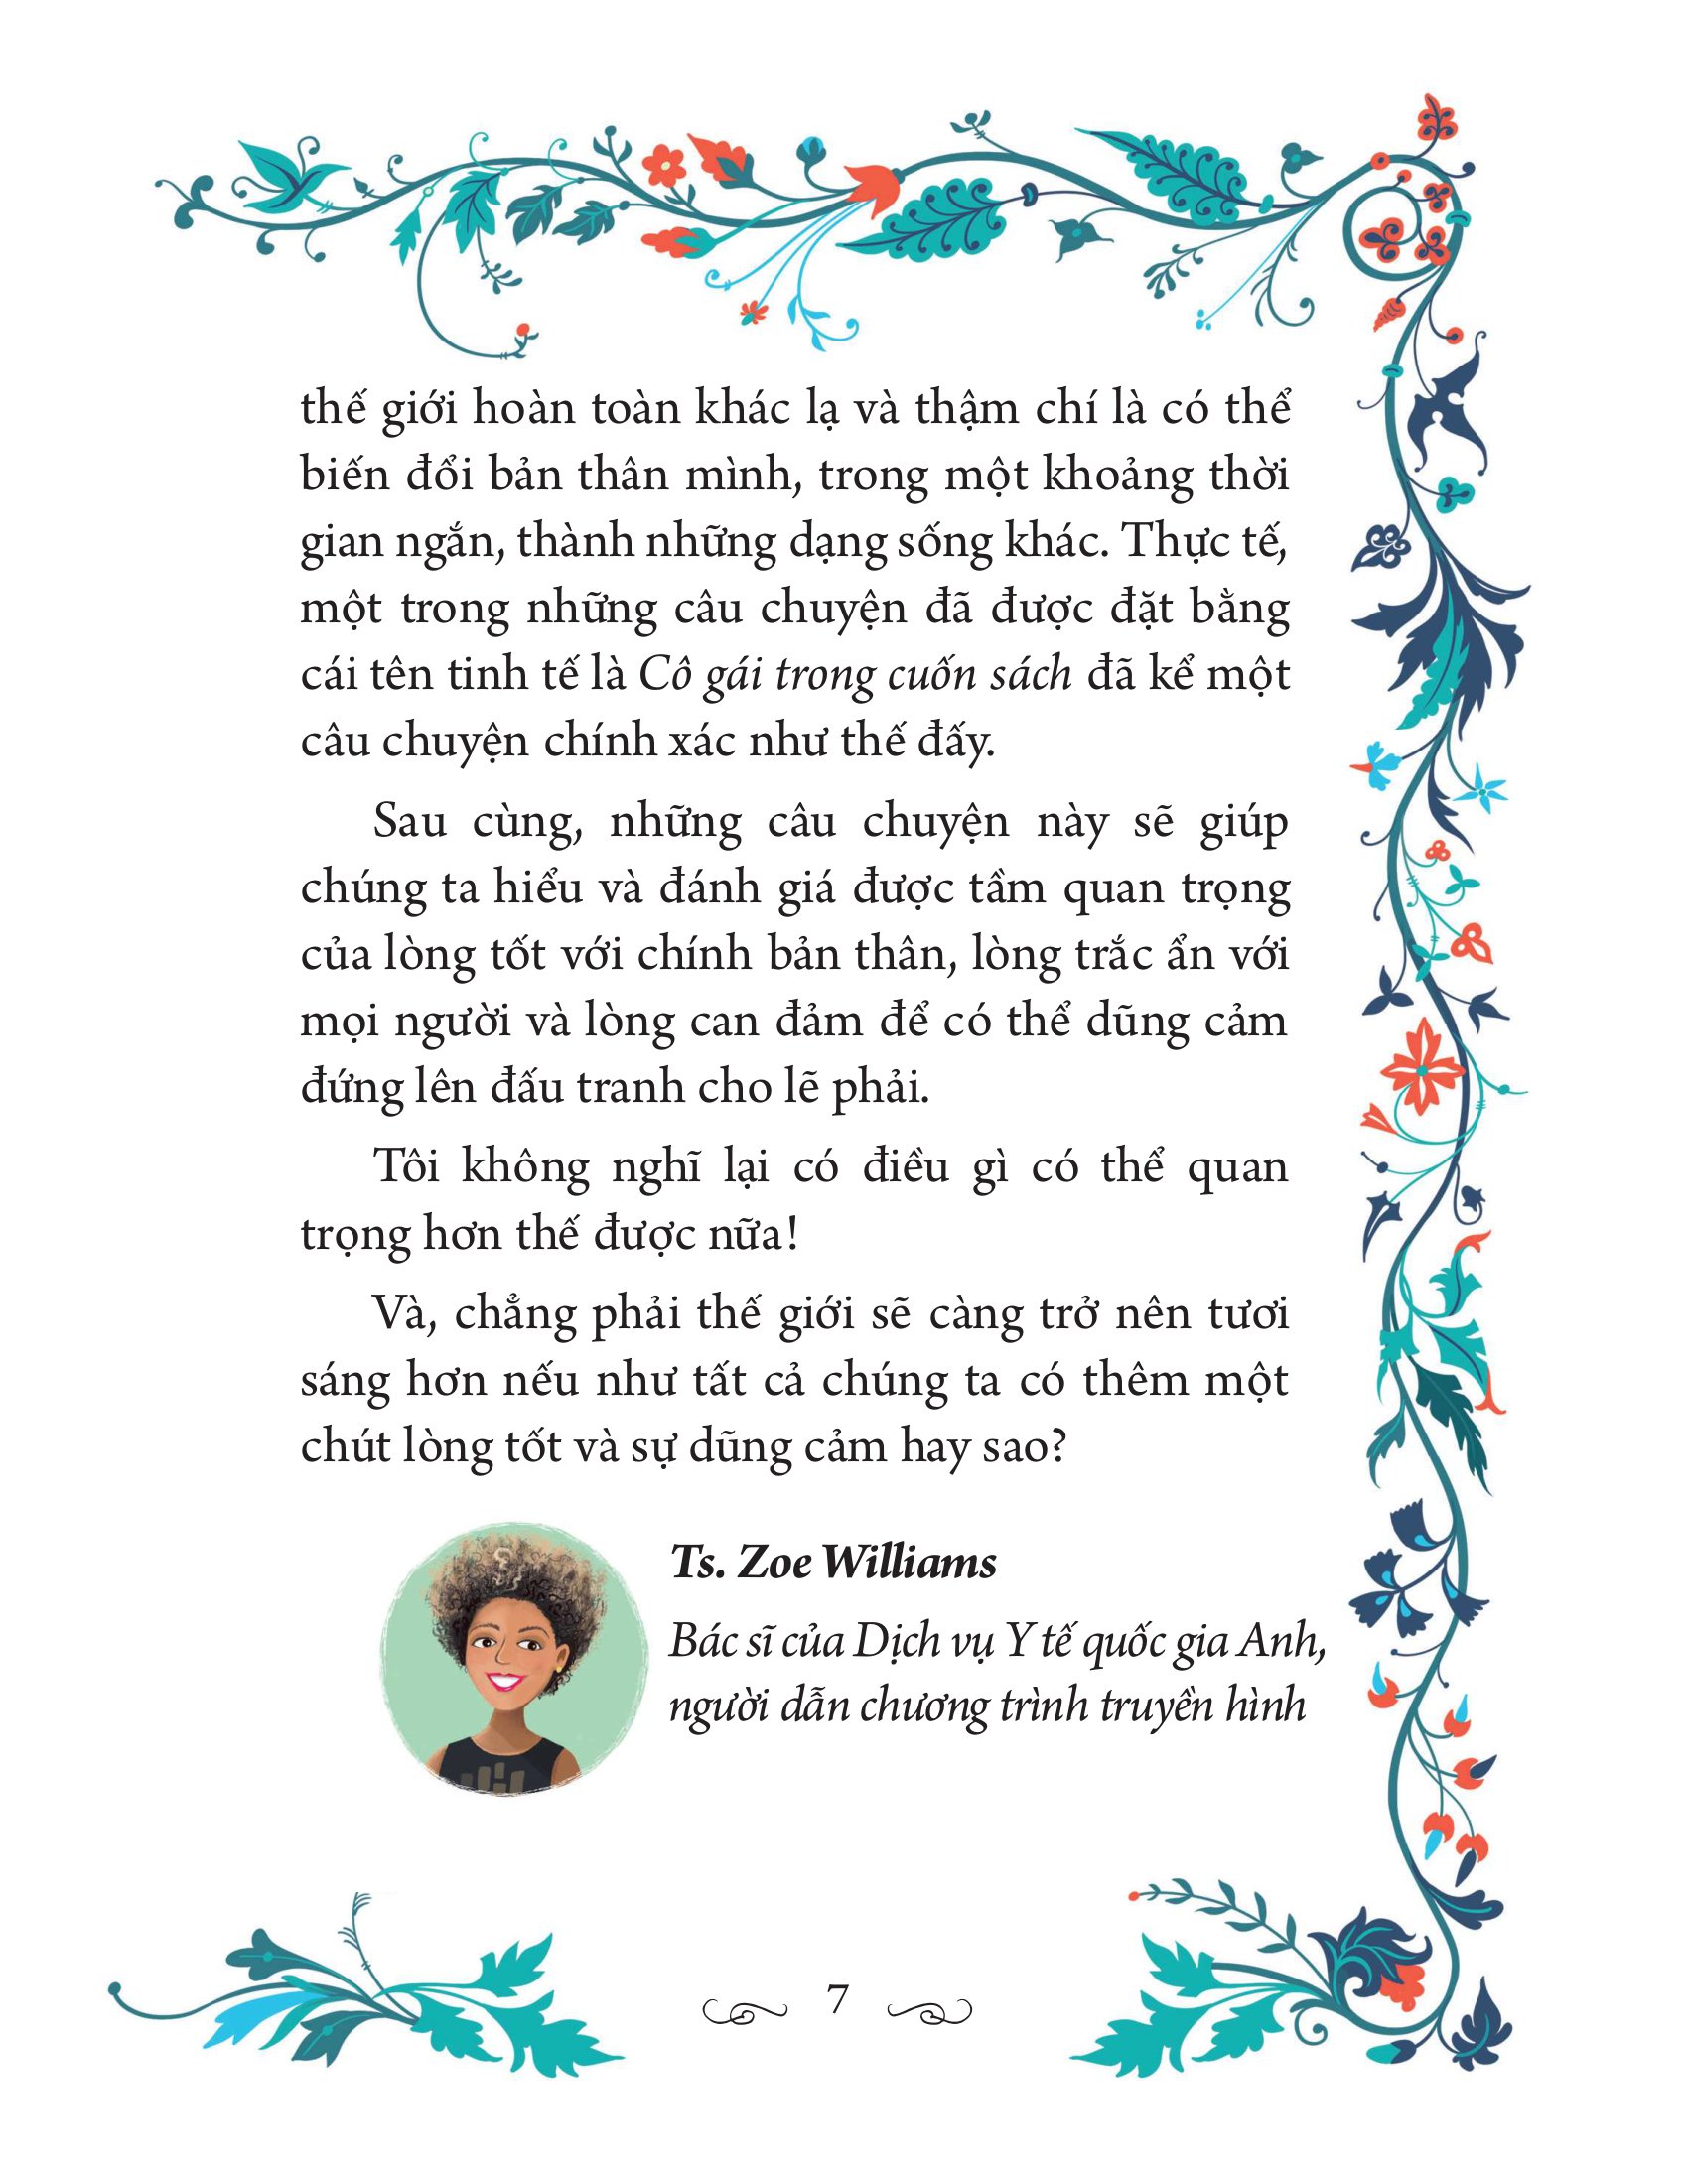 thế giới hoàn toàn khác lạ và thậm chí là có thể
biến đổi bản thân mình, trong một khoảng thời
gian ngắn, thành những dạng sống khác. Thực tế,
một trong những câu chuyện đã được đặt bằng
cái tên tinh tế là Cô gái trong cuốn sách đã kể một
câu chuyện chính xác như thế đấy.
Sau cùng, những câu chuyện này sẽ giúp
chúng ta hiểu và đánh giá được tầm quan trọng
của lòng tốt với chính bản thân, lòng trắc ẩn với
mọi người và lòng can đảm để có thể dũng cảm
đứng lên đấu tranh cho lẽ phải.
Tôi không nghĩ lại có điều gì có thể quan
trọng hơn thế được nữa!
Và, chẳng phải thế giới sẽ càng trở nên tươi
sáng hơn nếu như tất cả chúng ta có thêm một
chút lòng tốt và sự dũng cảm hay sao?
Ts. Zoe Williams
Bác sĩ của Dịch vụ Y tế quốc gia Anh,
người dẫn chương trình truyền hình
7